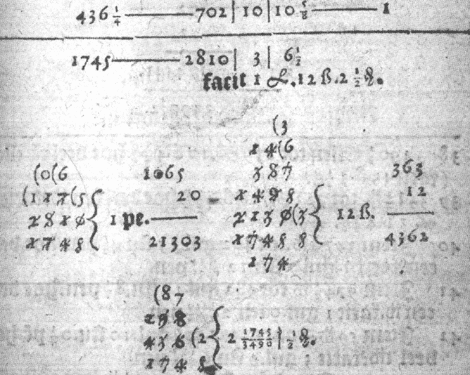 436 1/4 —— 702 | 10 | 10 5/8 —— 1
1745 —— 2810 | 3 | 6 1/2
facit 1 ℔. 12 ß. 2 1/2 ₰.
(3
1 4(6
3 8 7
(0(6 1065 363
(1 1 7(5 20 12
2 8 1 0 1 pe. 2 1 3 0(3 12 ß.
1 7 4 5 21303 1 7 4 5 5 4362
1 7 4
(87
1 9 8
4 3 6 (2 2 1745/3490 | 1/2 ₰.
1 7 4 5